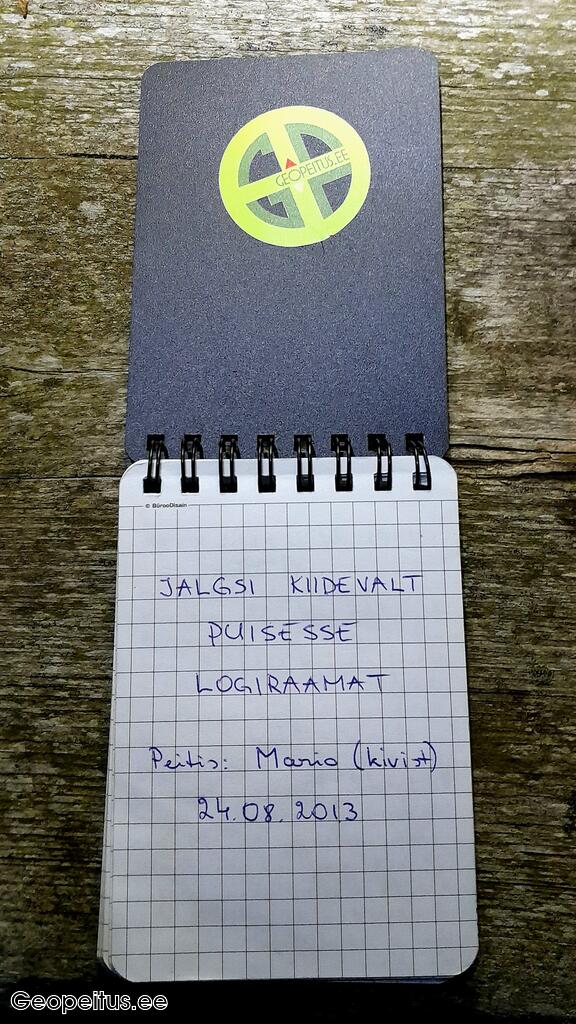 GEOPEITUS.EE
© BürooDisain
JALGSI KIIDEVALT
PUISESSE
LOGIRAAMAT
Peitis: Mario (kivist)
24.08.2013
Geopeitus.ee